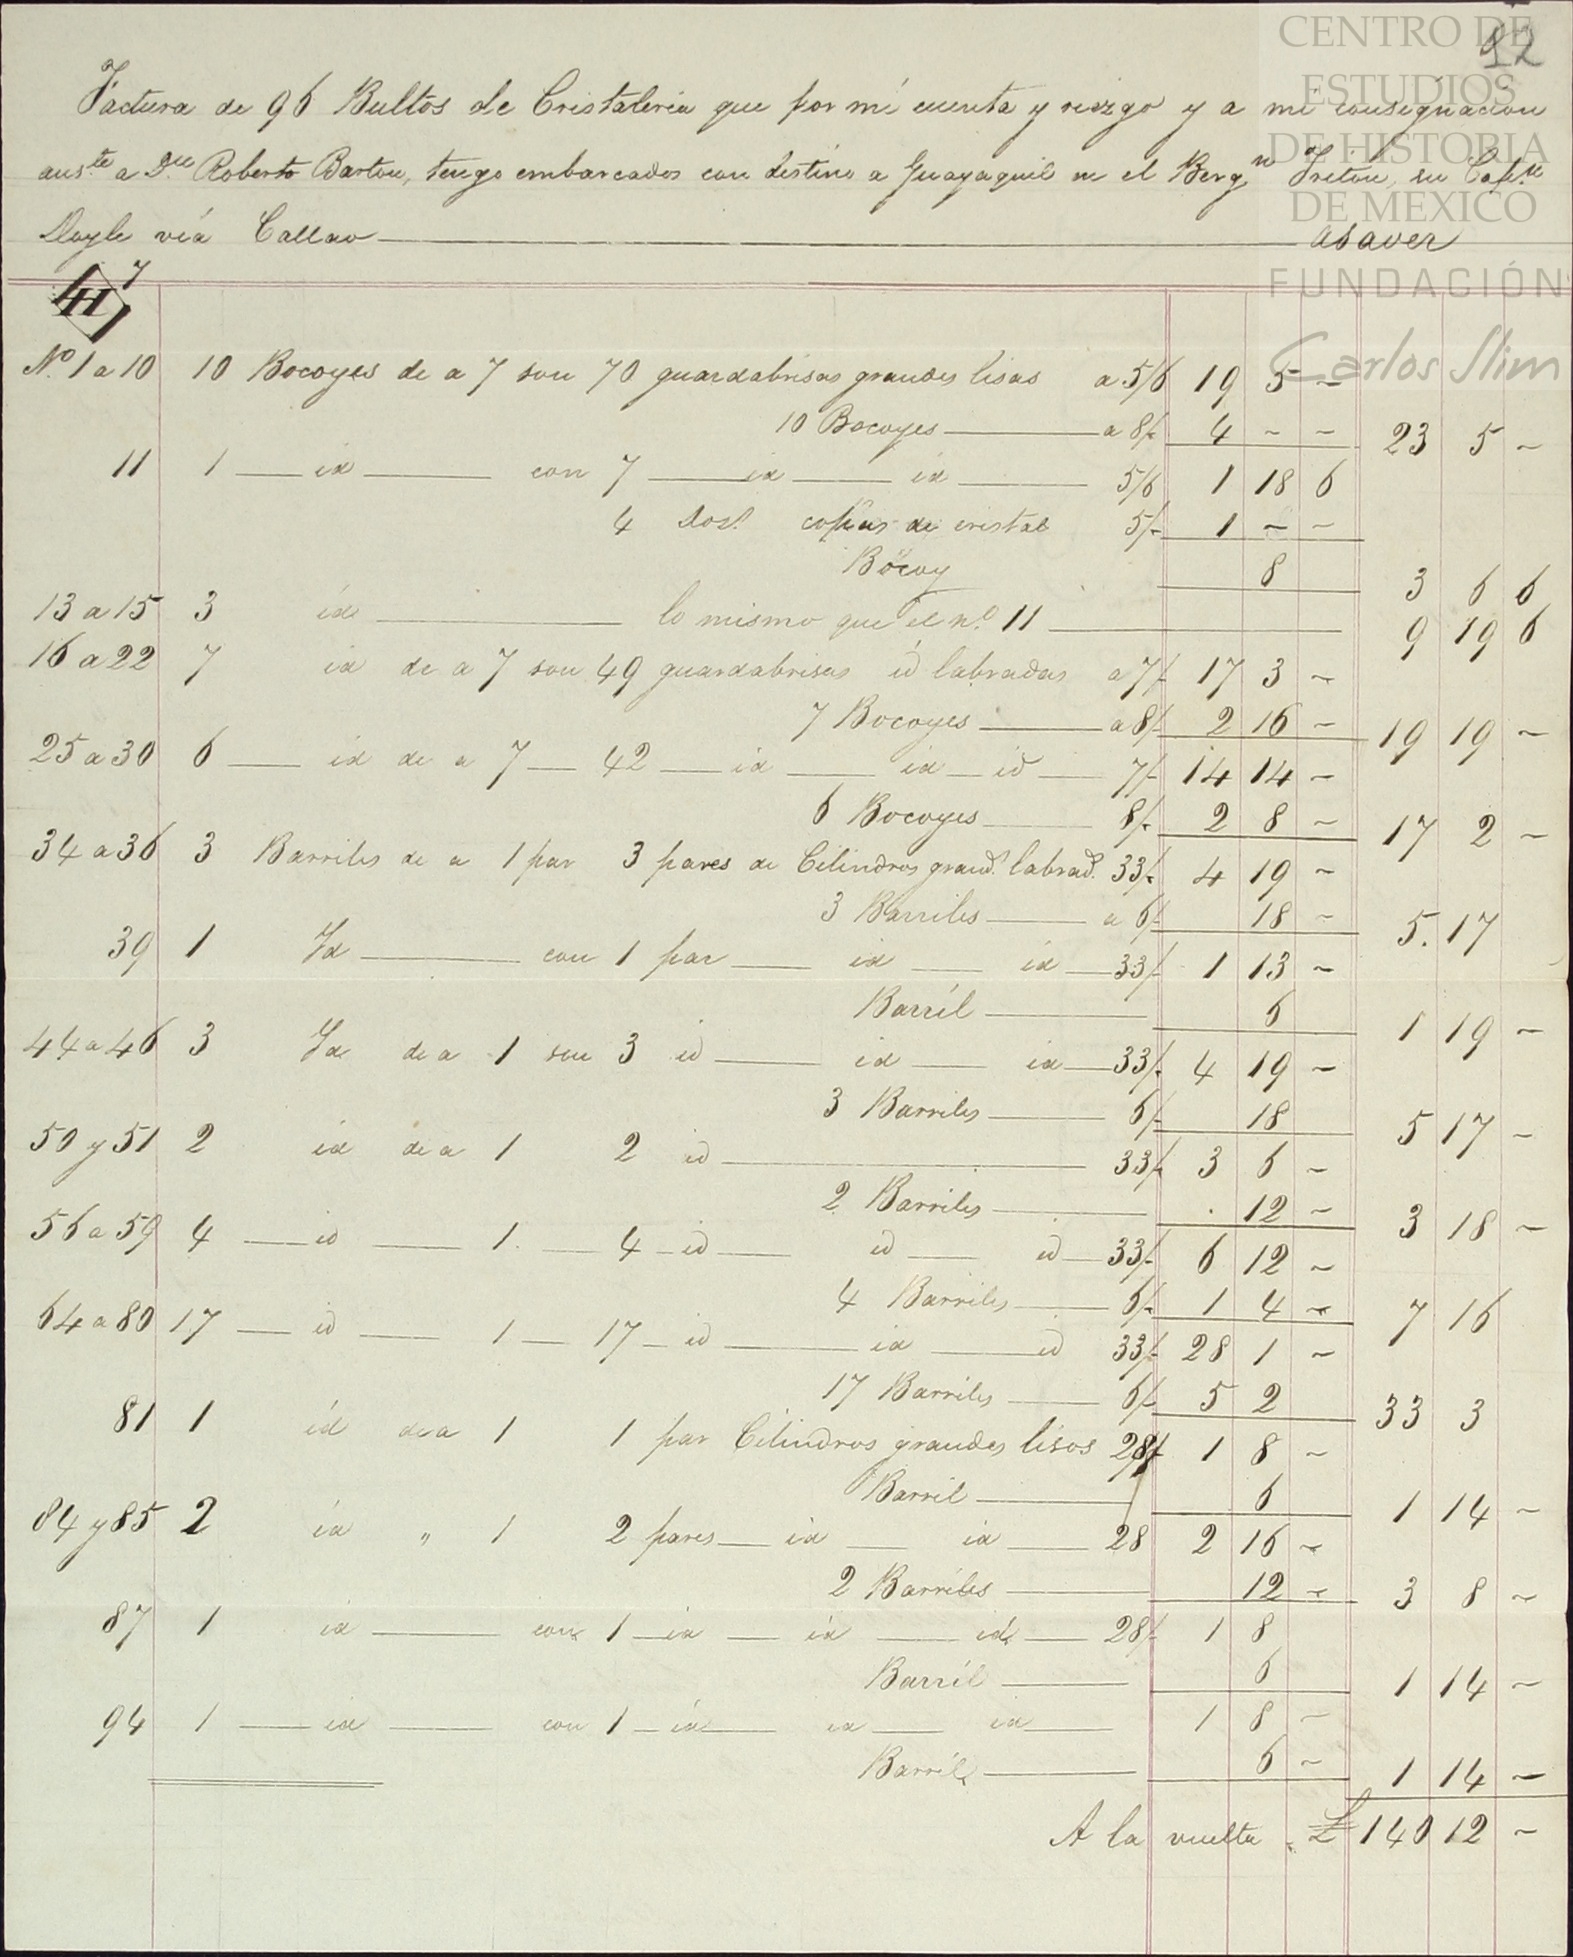 CENTRO DE
ESTUDIOS
DE HISTORIA
DE MEXICO
FUNDACIÓN
Carlos Slim
12
Factura de 96 Bultos de Cristaleria que por mi cuenta y riezgo y a mi consignacion
aus.te a Dn. Roberto Barton, tengo embarcados con destino a Guayaquil en el Berg.n Triton, su Cap.n
Doyle viá Callao asaver
7
H
No. 1 a 10 10 Bocoyes de a 7 son 70 guardabrisas grandes lisas a 5/6 19 5 -
10 Bocoyes a 8/- 4 - - 23 5 -
11 1 id con 7 id id 5/6 1 18 6
4 Dos. copas de cristal 5/- 1 - -
Bocoy 8 3 6 6
13 a 15 3 id lo mismo que el no. 11 9 19 6
16 a 22 7 id de a 7 son 49 guardabrisas id labradas a 7/- 17 3 -
7 Bocoyes a 8/- 2 16 - 19 19 -
25 a 30 6 id de a 7 42 id id id 7/- 14 14 -
6 Bocoyes 8/- 2 8 - 17 2 -
34 a 36 3 Barriles de a 1 par 3 pares de Cilindros grand. labrad. 33/- 4 19 -
3 Barriles a 6/- 18 - 5. 17
39 1 Id con 1 par id id 33/- 1 13 -
Barríl 6 1 19 -
44 a 46 3 Id de a 1 son 3 id id id 33/- 4 19 -
3 Barriles 6/- 18 5 17 -
50 y 51 2 id de a 1 2 id 33/- 3 6 -
2 Barriles 12 - 3 18 -
56 a 59 4 id 1 4 id id id 33/- 6 12 -
4 Barriles 6/- 1 4 - 7 16
64 a 80 17 id 1 17 id id id 33/- 28 1 -
17 Barriles 6/- 5 2 33 3
81 1 id de a 1 1 par Cilindros grandes lisos 28/- 1 8 -
Barril 6 1 14 -
84 y 85 2 id " 1 2 pares id id 28 2 16 -
2 Barriles 12 - 3 8 -
87 1 id con 1 id id id 28/- 1 8
Barríl 6 1 14 -
94 1 id con 1 id id id 1 8 -
Barríl 6 - 1 14 -
A la vuelta £ 140 12 -